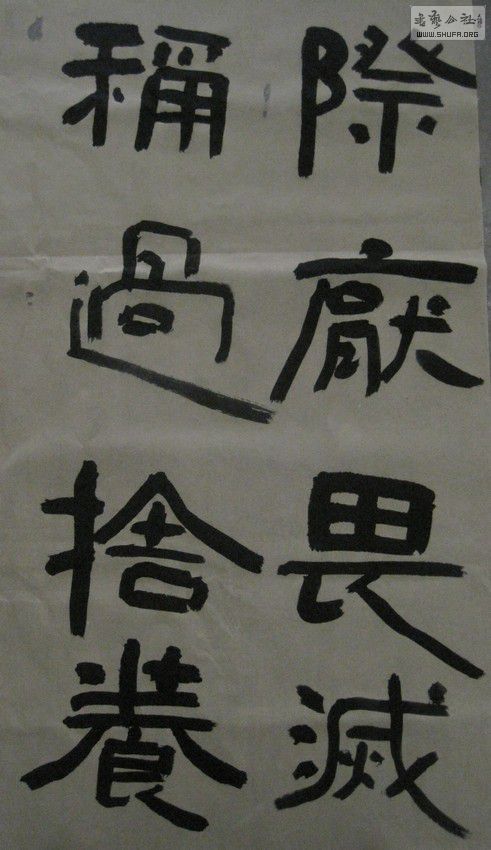 際厭畏滅
稱過捨養
書藝公社
WWW.SHUFA.ORG